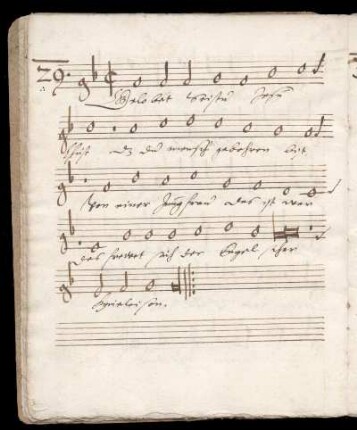 29.
Gelobet seistu Jesu
Christ dz du mensch gebohren bist
Von einer Jungfrau das ist war
des frewet sich der Engel schar
Kyrieleison.